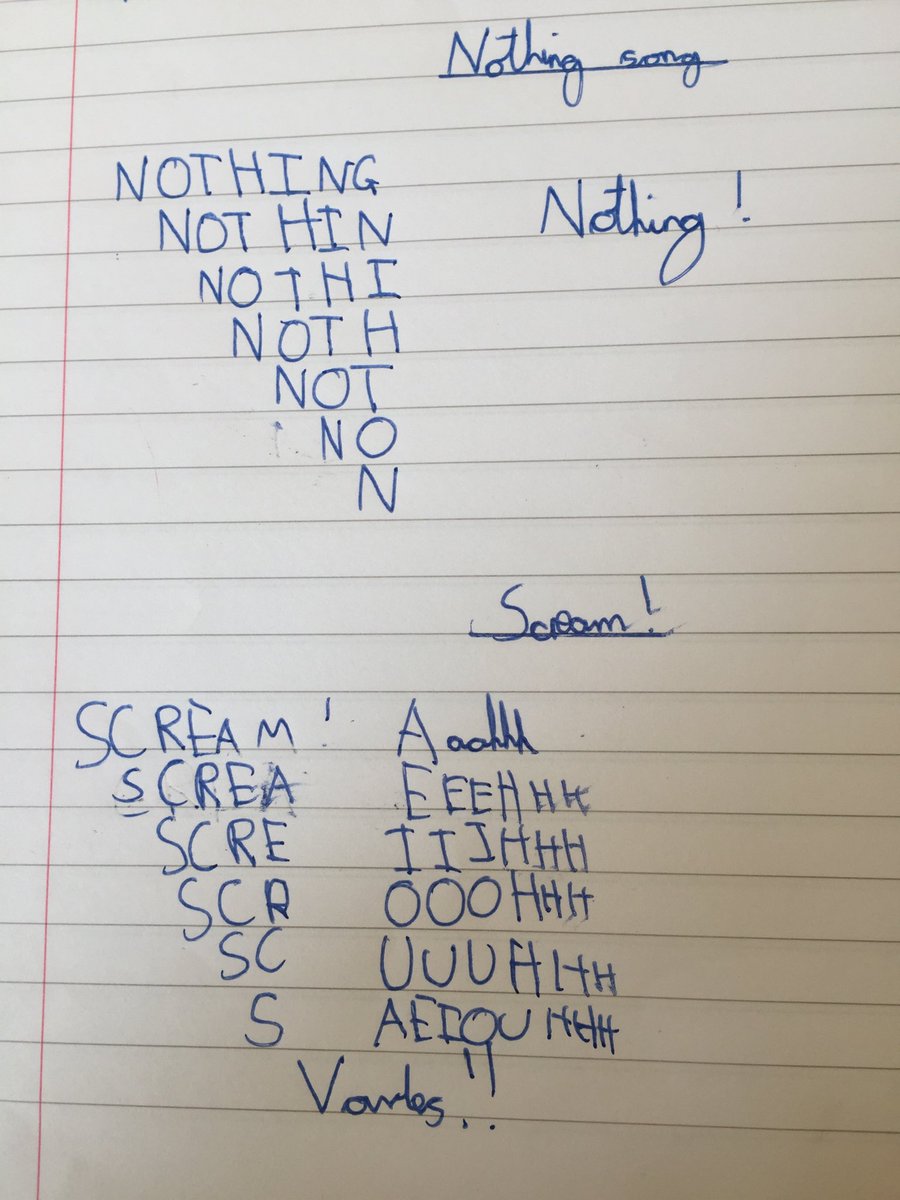 Nothing song
NOTHING
Nothing!
NOTHIN
NOTHI
NOTH
NOT
NO
N
Scream!
SCREAM! Aaahhh
SCREA EEEHHH
SCRE IIIHHH
SCR OOOHHH
SC UUUHHH
S AEIOUHHH
Vowles!!